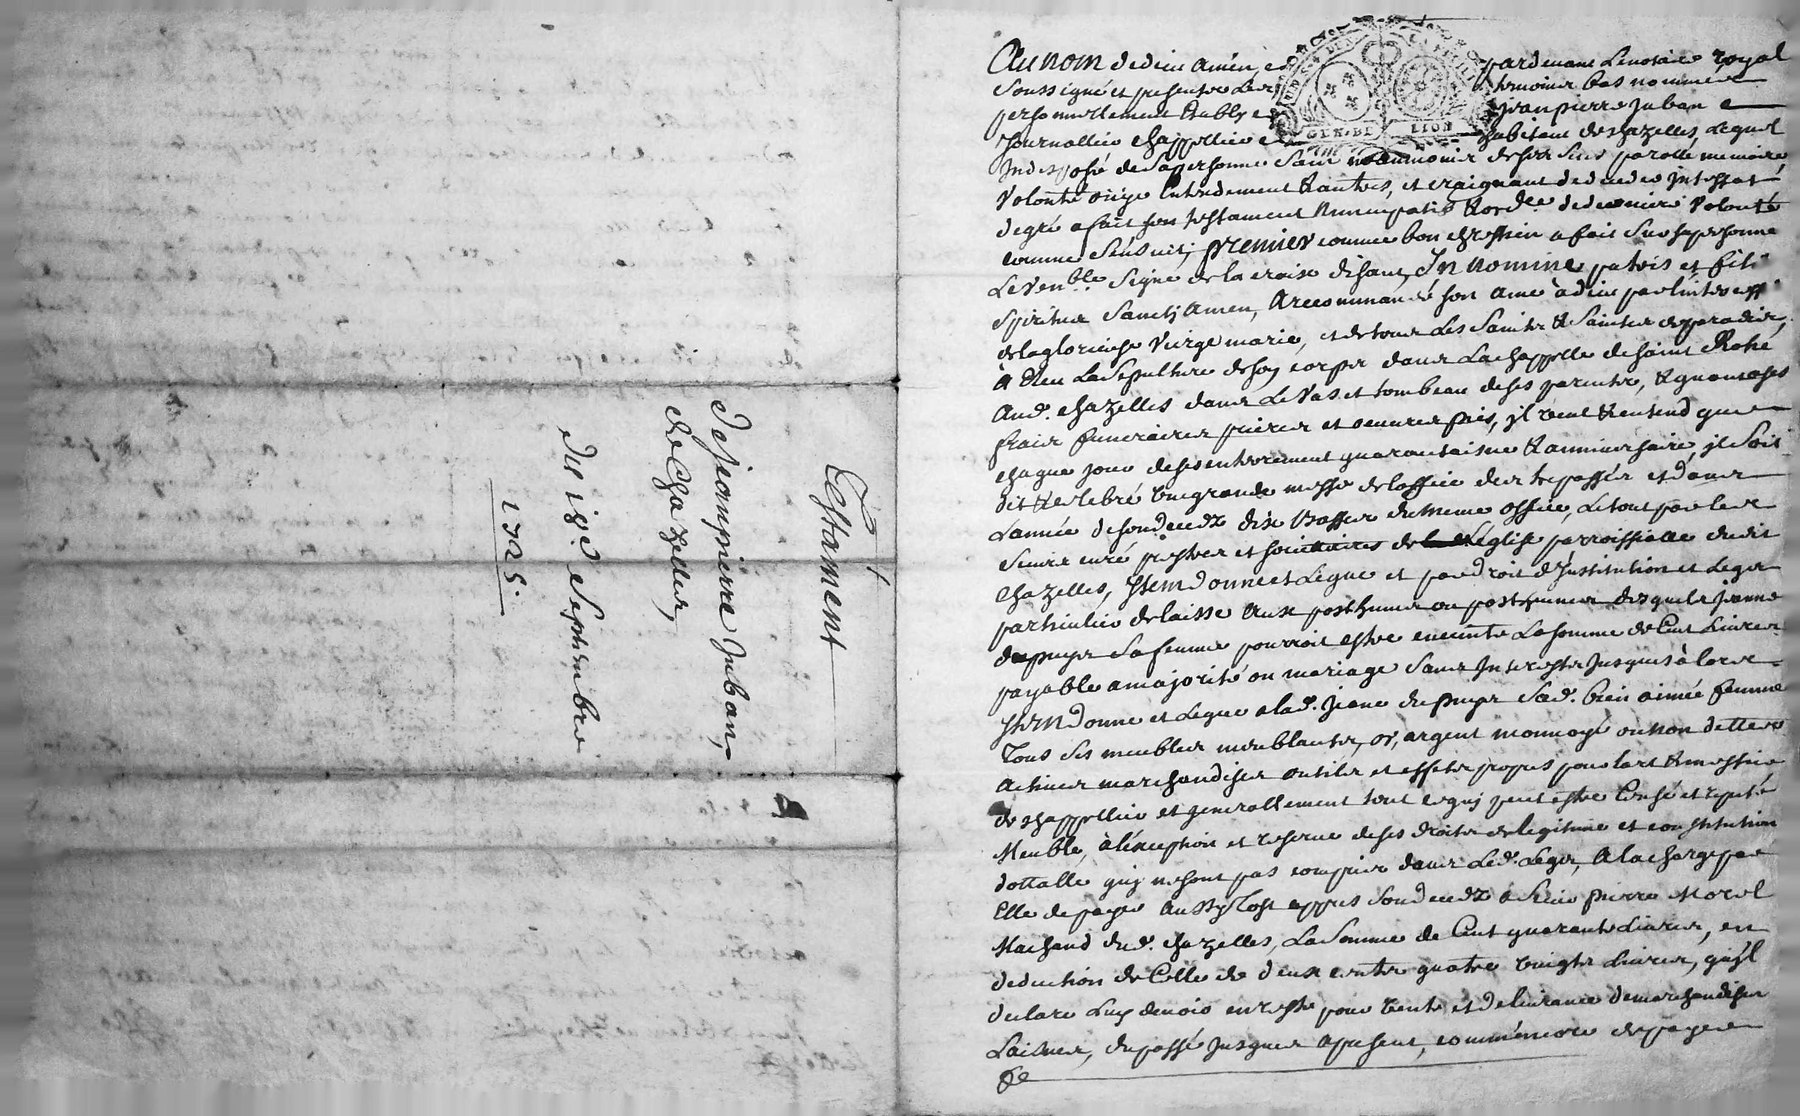 Testament
de jeanpierre Juban,
de Chazelles,
du 18e. Septembre
1725.
Au nom de dieu amén, pardevant Lenotaire royal
Soussigné et presents Les temoins bas nommes
personnellement Estably jean pierre Juban
Journallier chappellier habitant de chazelles, Lequel
Indisposé de sa personne sans neanmoins de ses sens parolle memoire
Volonté Entendement & autres, et craignant de deceder Intestat
de gré a fait son testament Nuncupatif & ordce. de derniere Volonté
comme s'ensuit; premier comme bon chrestien a fait sur sa personne
Le Venble. Signe de la croix disant, In nomine patris et filij
Spiritus Sancti Amen, A recommandé son Ame à dieu par l'intercession
de la glorieuse Vierge marie, et de tous Les Saints & Saintes de paradis,
A Eleu La Sepulture de son corps dans La chappelle de saint Roch
Aud. chazelles dans Le Vas et tombeau de ses parents, & quant a ses
fraix funeraires prieres et oeuvres pies, il veut & entend que
chaque jour de ses enterrement quarantaine & anniversaire, il Soit
dit & celebré une grande messe de l'office des trepassés et dans
L'année de son deceds dix basses du meme office, Le tout par les
Sieurs curé prestres et societaires de L'Eglise parroissialle dudit
chazelles, Item donne et Legue et par droit d'Institution et Legat
particulier delaisse Aux posthumes ou posthumes desquels jeanne
dupuys Sa femme pourroit estre enceinte La somme de Cent Livres
payable a majorité ou mariage Sans Interests Jusques à lors
Item donne et Legue a lad. jeanne dupuys Sad. bien aimée femme
Tous ses meubles meublants, or, argent monnoyé ou non dettes
actives marchandises outils et effets propres pour l'art & mestier
de chappellier et generallement tout ce quj peut estre Censé et reputé
Meuble, à l'exception et reserve de ses droits de legitime et constitution
dottalle quj ne sont pas compris dans Led. Legat, A la charge par
Elle de payer Aussy tost appres son deceds a Sieur pierre Morel
Machand dud. chazelles, La Somme de Cent quarante Livres, en
deduction de Celle de deux cents quatre vingts Livres, qu'il
declare Luy devoir en reste pour vente et delivrance de marchandises
Laines, du passé jusques a present, comm'encore de payer